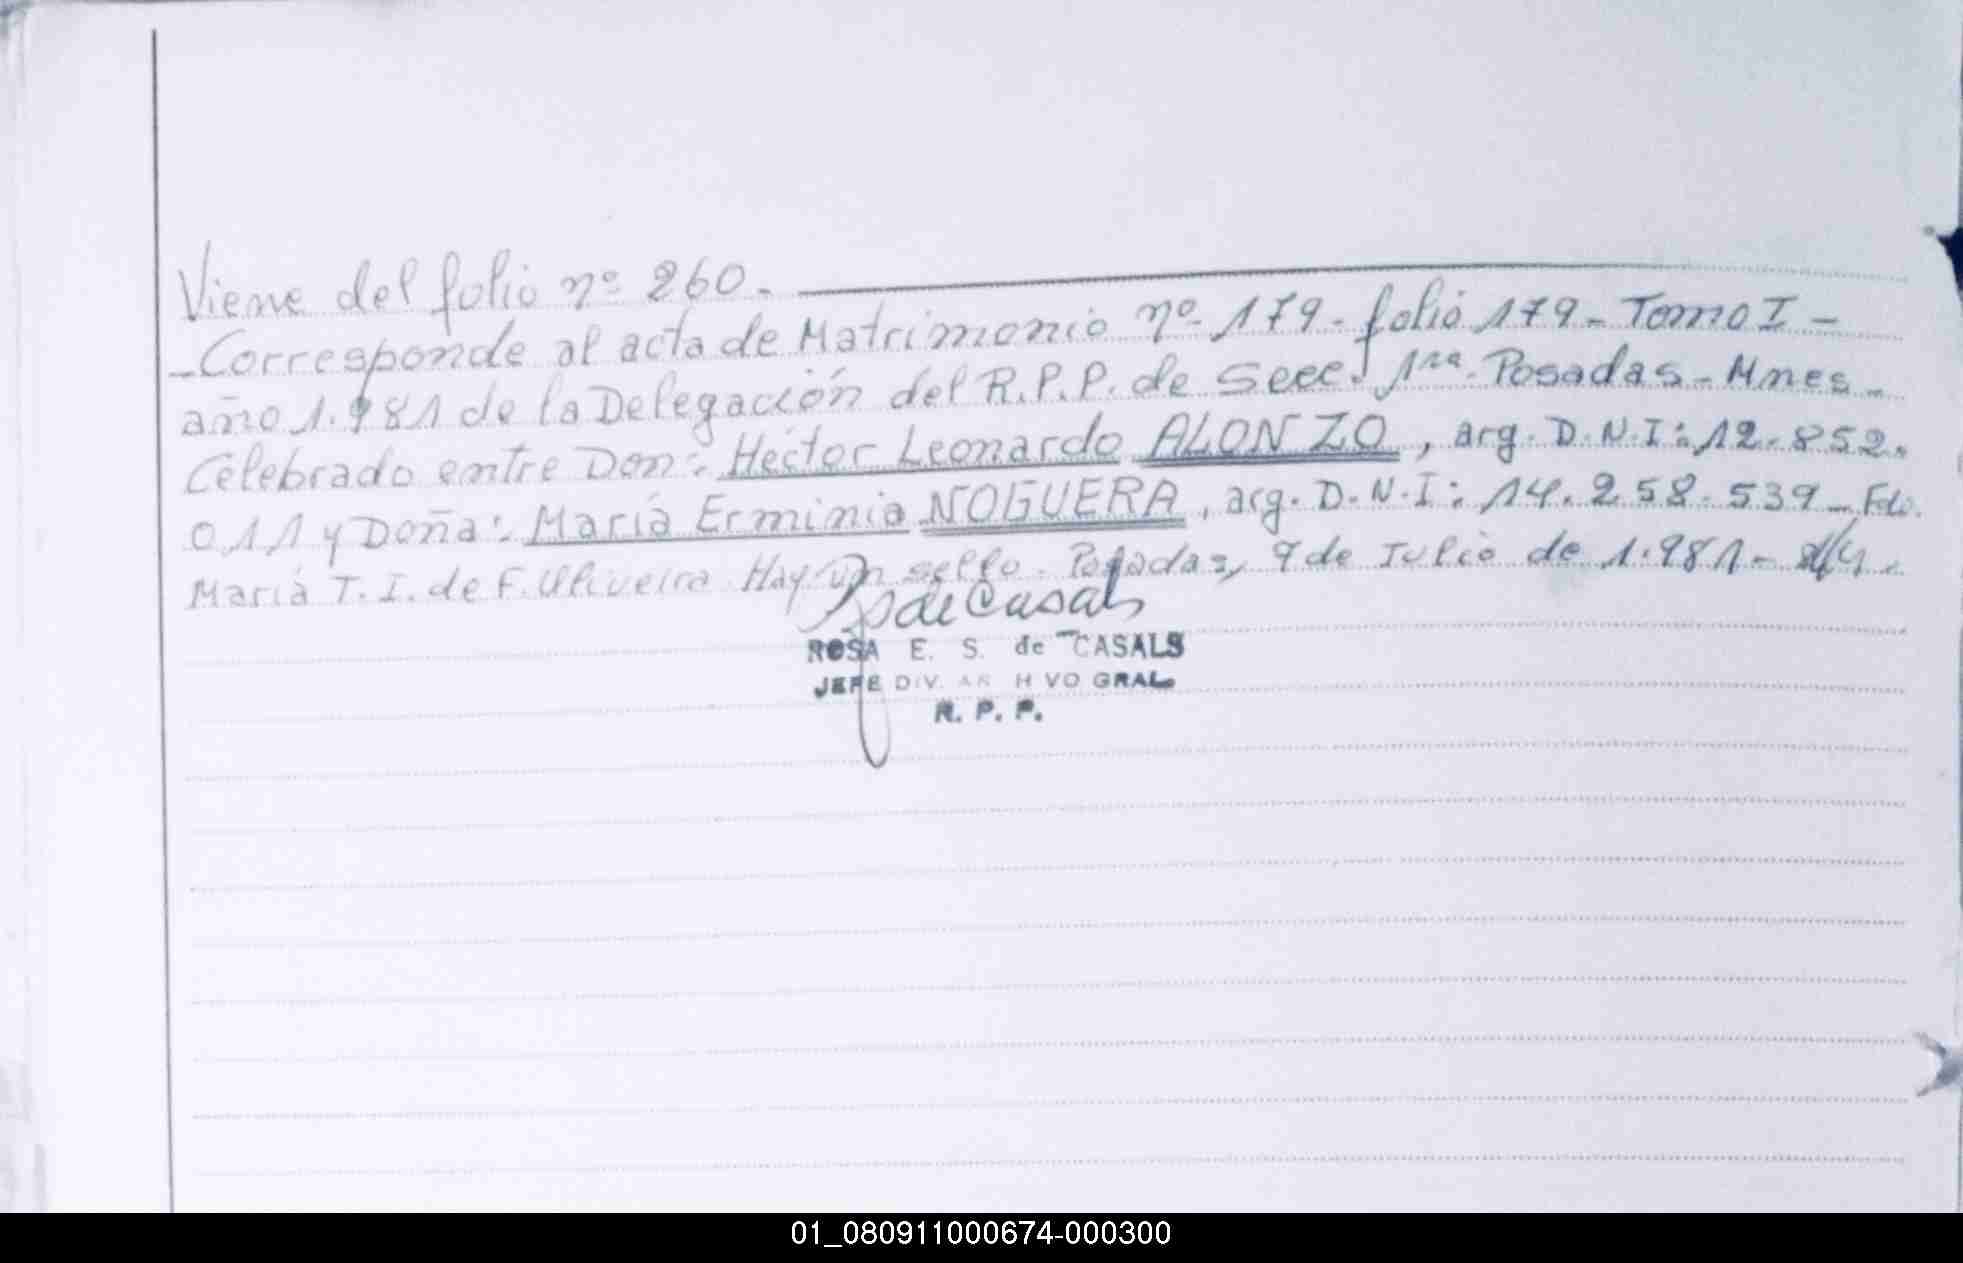 Viene del folio nº 260.-
-Corresponde al acta de Matrimonio nº 179- folio 179- Tomo I-
año 1.981 de la Delegación del R.P.P. de Secc. 1ra. Posadas- Mnes-
Celebrado entre Don: Héctor Leonardo ALONZO, arg. D.N.I: 12.852.
011 y Doña: María Erminia NOGUERA, arg. D.N.I: 14.258.539- Fdo.
María T. I. de F. Uliveira. Hay un sello. Posadas, 9 de Julio de 1.981-
de Casals
ROSA E. S. de CASALS
JEFE DIV. AR HVO GRAL
R. P. P.
01_080911000674-000300